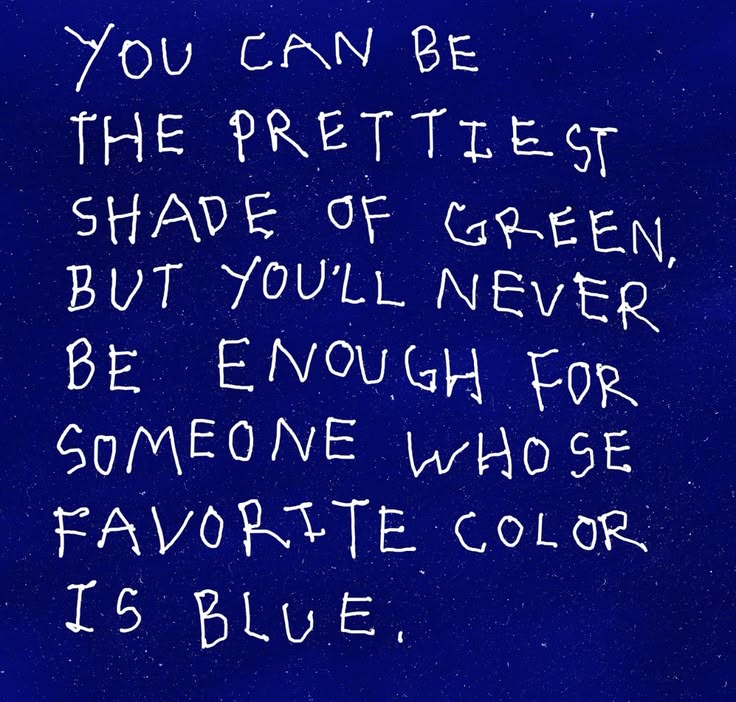 YOU CAN BE
THE PRETTIEST
SHADE OF GREEN,
BUT YOU'LL NEVER
BE ENOUGH FOR
SOMEONE WHOSE
FAVORITE COLOR
IS BLUE.